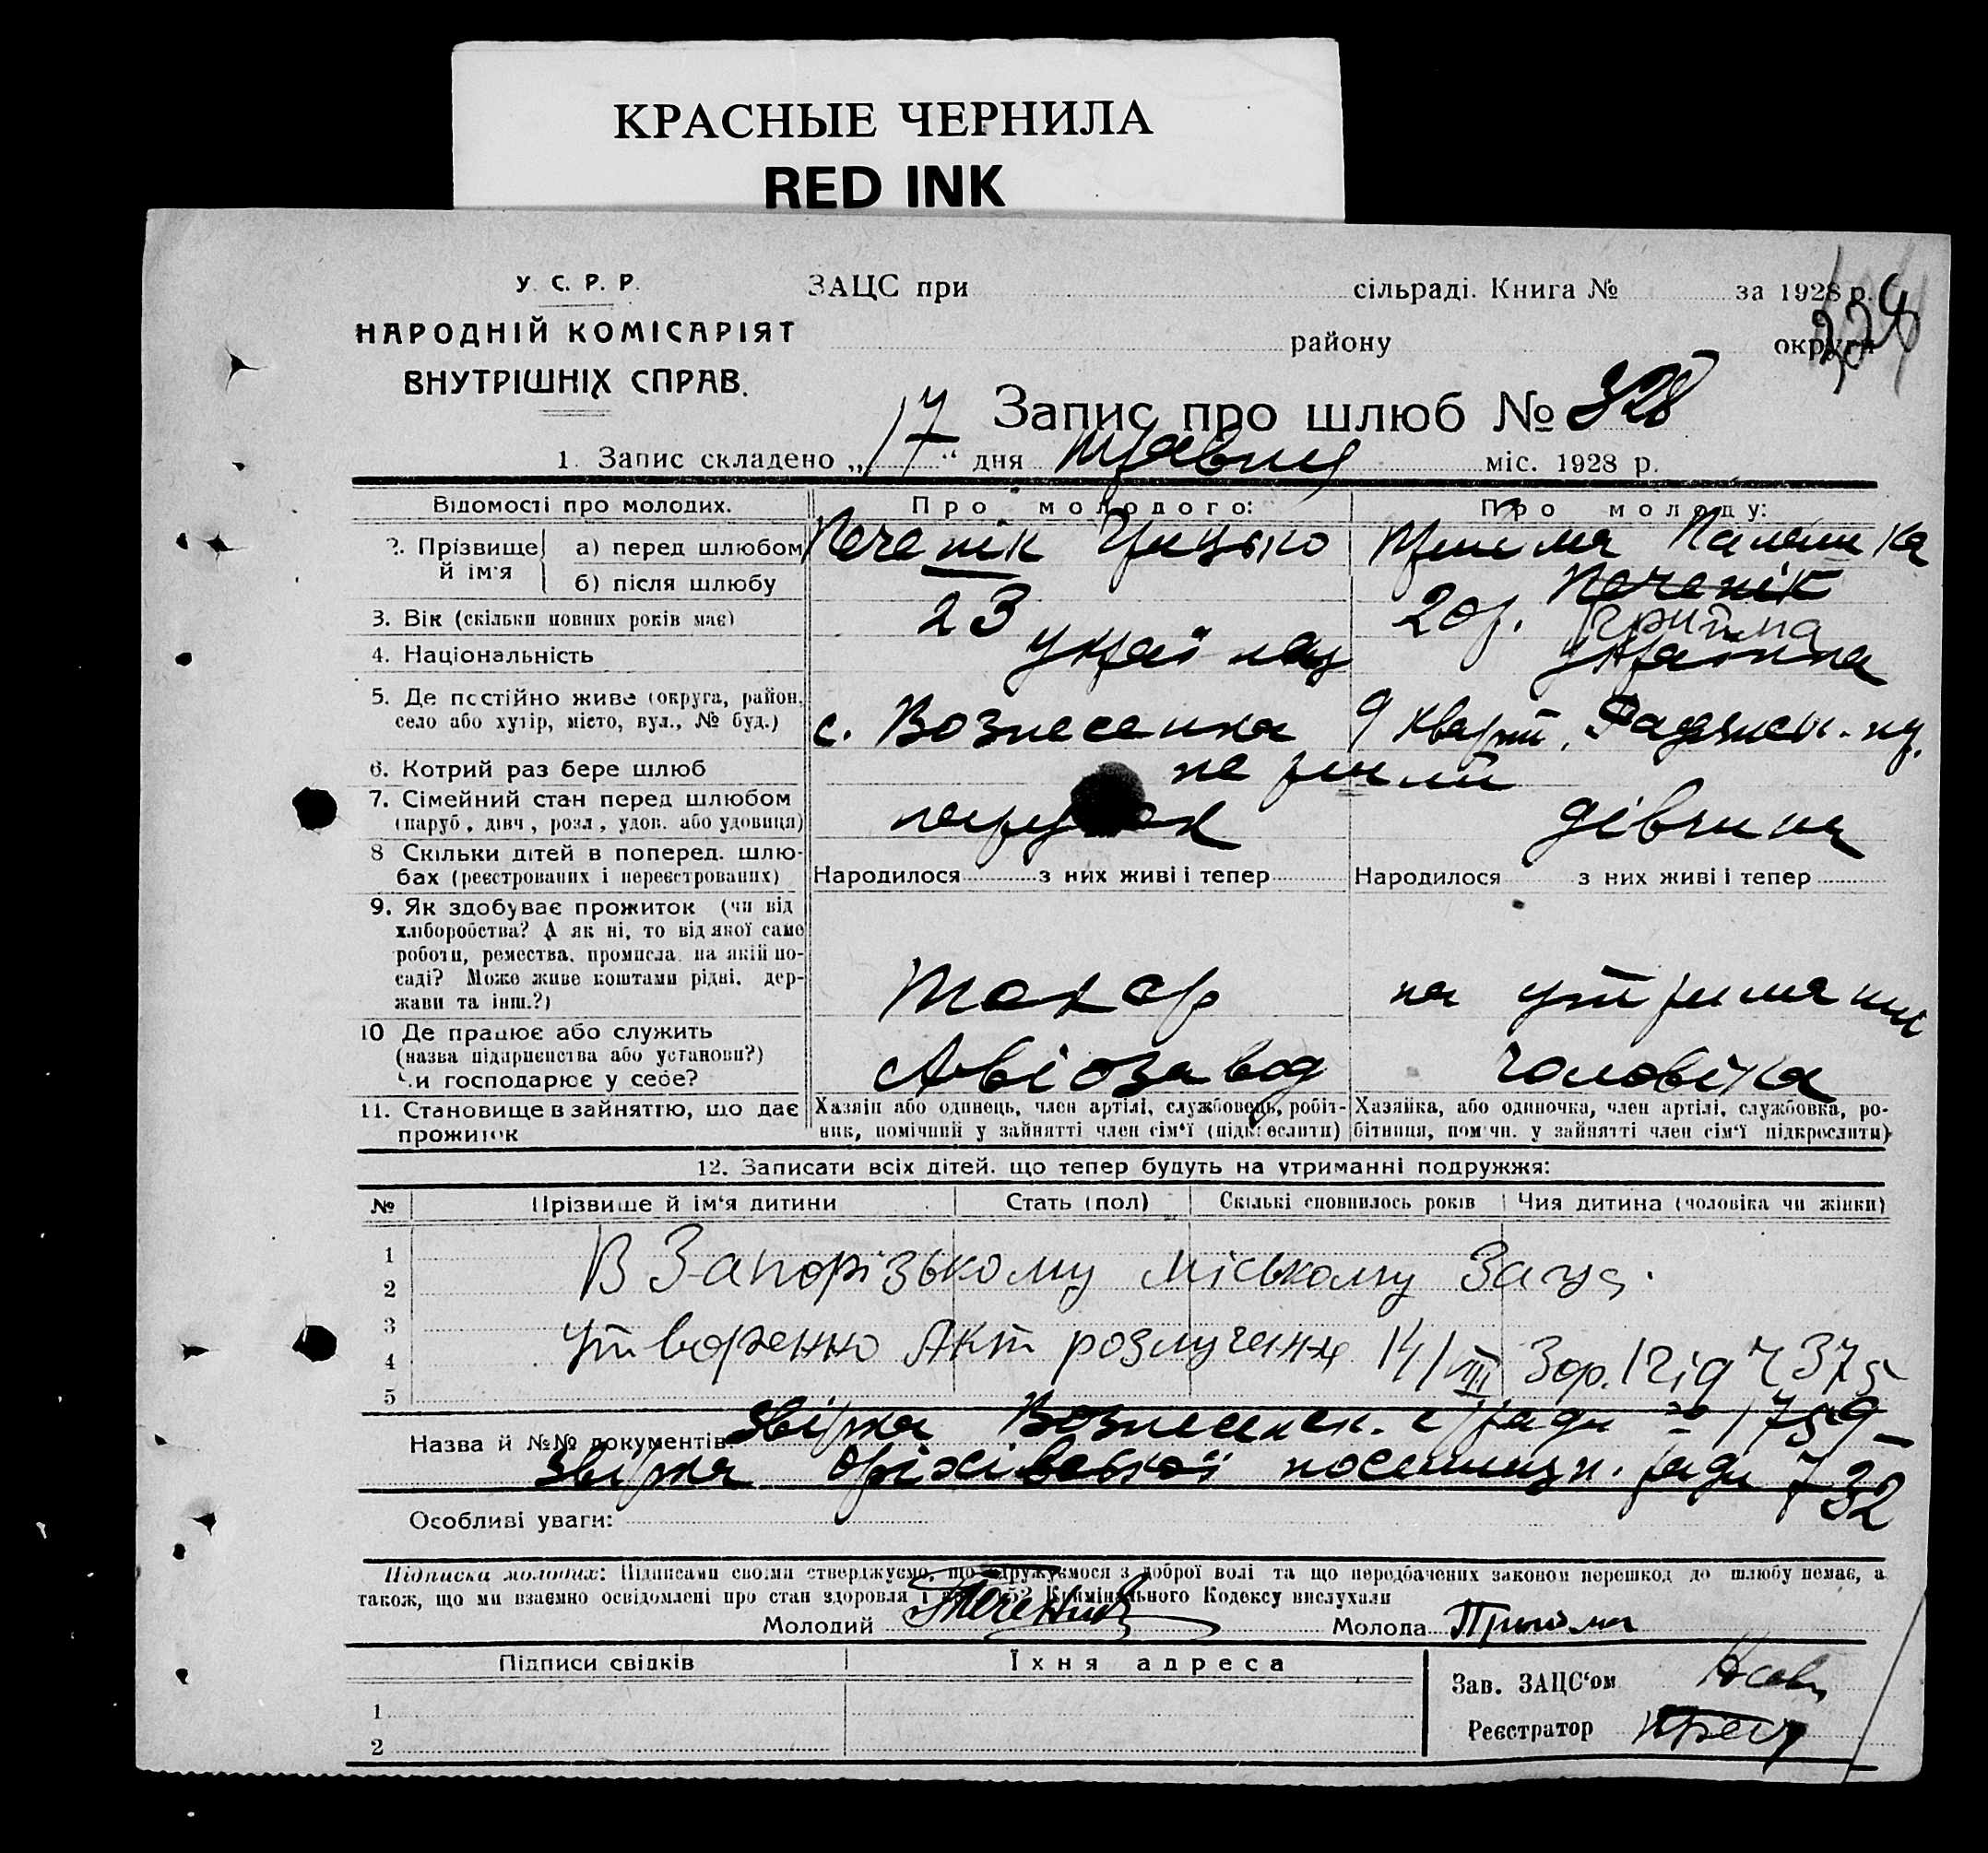 КРАСНЫЕ ЧЕРНИЛА
RED INK
У. С. Р. Р.
НАРОДНІЙ КОМІСАРІЯТ
ВНУТРІШНІХ СПРАВ.
ЗАЦС при сільраді. Книга № за 1928 р.
району округи
Запис про шлюб № 328
1. Запис складено „17“ дня травня міс. 1928 р.
Відомості про молодих. Про молодого: Про молоду:
2. Прізвище й ім'я
а) перед шлюбом Печенік Грицько
б) після шлюбу Печенік
3. Вік (скільки повних років має) 23 20 р.
4. Національність українець українка
5. Де постійно живе (округа, район,
село або хутір, місто, вул., № буд.) с. Вознесенка 9 кварт.
6. Котрий раз бере шлюб
7. Сімейний стан перед шлюбом
(паруб., дівч., розл., удов. або удовиця) парубок дівчина
8 Скільки дітей в поперед. шлю-
бах (реєстрованих і нереєстрованих) Народилося з них живі і тепер Народилося з них живі і тепер
9. Як здобуває прожиток (чи від
хліборобства? А як ні, то від якої саме
роботи, ремества, промисла, на якій по-
саді? Може живе коштами рідні, дер-
жави та інш.?) токар на утриманні
10 Де працює або служить
(назва підприємства або установи?)
Чи господарює у себе? Авіозавод чоловіка
11. Становище в зайняттю, що дає
прожиток
Хазяїн або одинець, член артілі, службовець, робіт-
ник, помічний у зайнятті член сім'ї (підкреслити)
Хазяйка, або одиночка, член артілі, службовка, ро-
бітниця, помічн. у зайнятті член сім'ї підкреслити)
12. Записати всіх дітей, що тепер будуть на утриманні подружжя:
№ Прізвище й ім'я дитини Стать (пол) Скількі сповнилось років Чия дитина (чоловіка чи жінки)
1
2
3
4
5
В Запорізькому міському Загсі
утворенно Акт розлучення 14/VIII 30р.
Назва й №№ документів: Звірка Вознесенск. с/ради № 1759
Звірка Оріхівської посел. ради 732
Особливі уваги:
Підписка молодих: Підписами своїми стверджуємо, що одружуємося з доброї волі та що передбачених законом перешкод до шлюбу немає, а
також, що ми взаємно освідомлені про стан здоровля і Кримінального Кодексу вислухали
Молодий Печенік Молода Прийма
Підписи свідків Їхня адреса
1
2
Зав. ЗАЦС'ом
Реєстратор